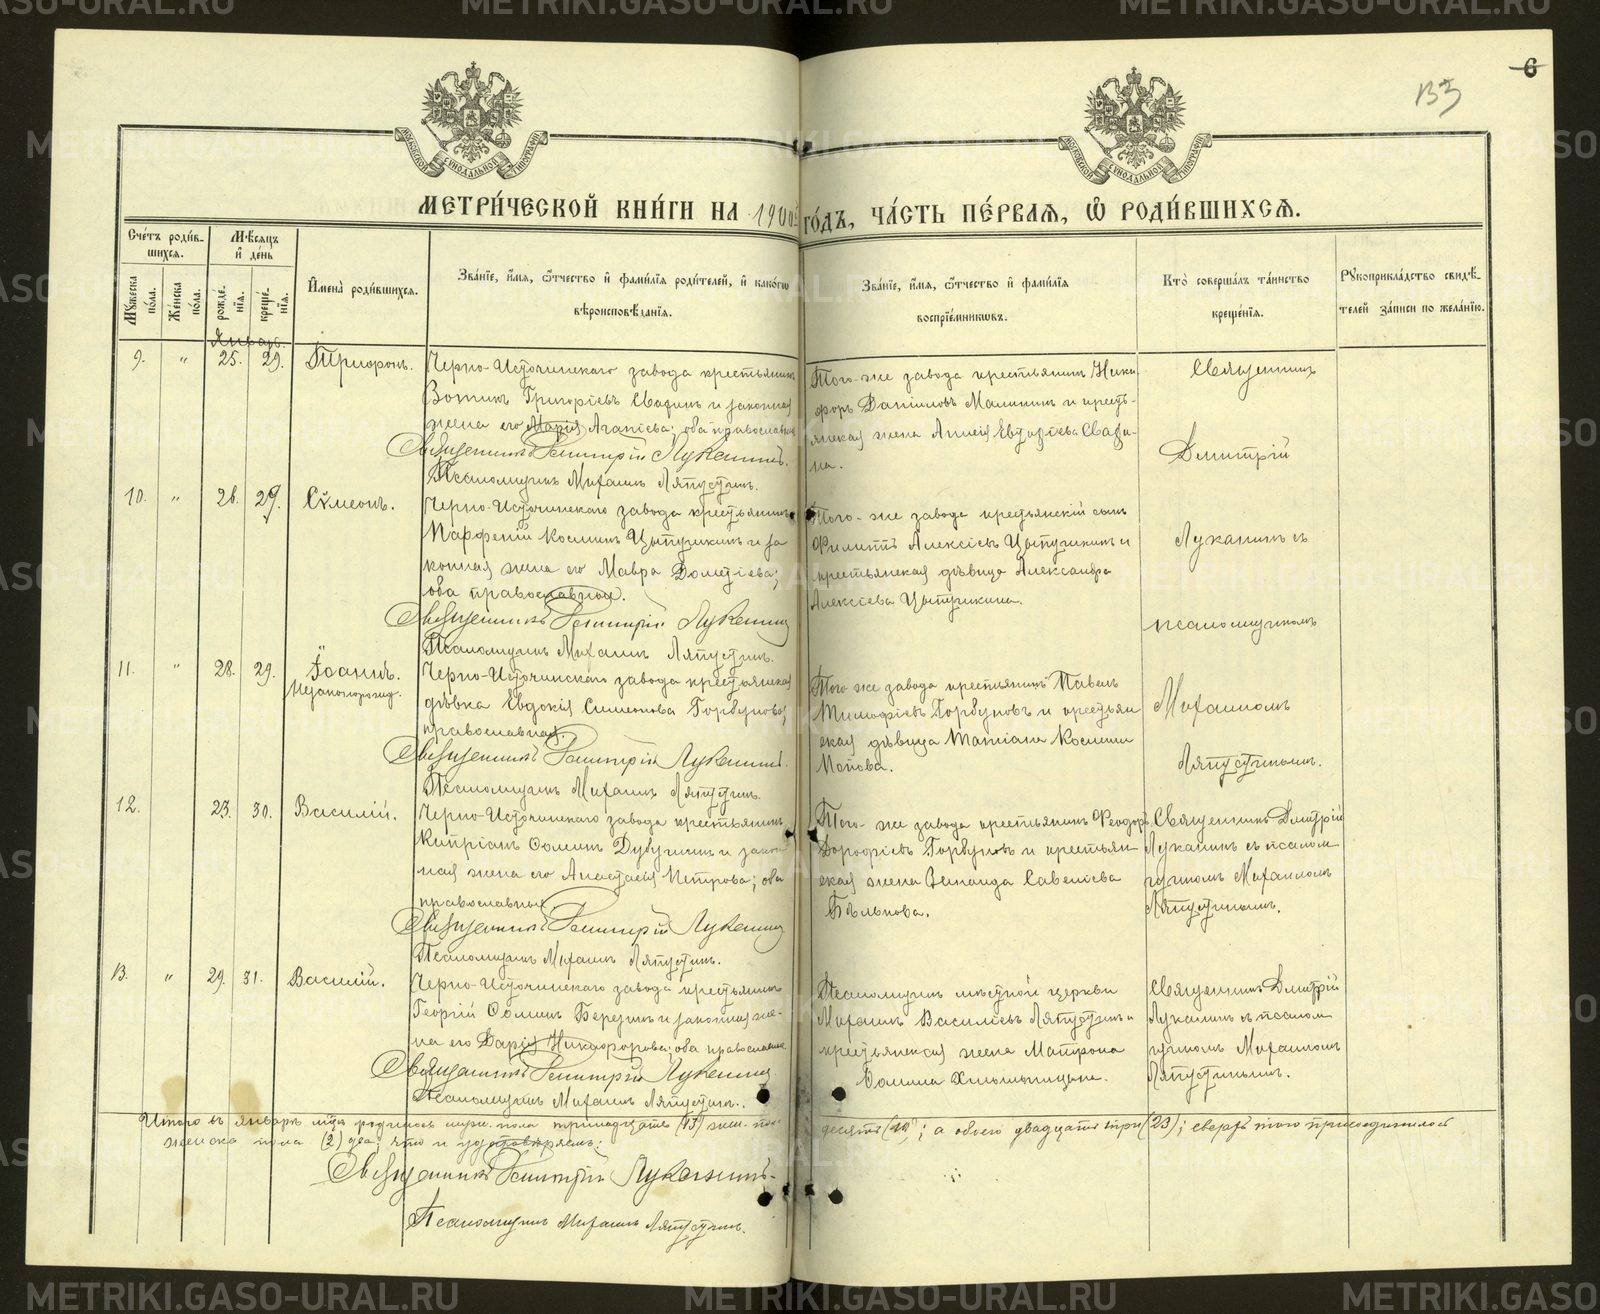 METRIKI.GASO-URAL.RU
6
133
МОСКОВСКОЙ СѴНОДАЛЬНОЙ ТИПОГРАФІИ
МОСКОВСКОЙ СѴНОДАЛЬНОЙ ТИПОГРАФІИ
МЕТРИ́ЧЕСКОЙ КНИ́ГИ НА 1900й ГО́ДЪ, ЧА́СТЬ ПЕ́РВАЯ, Ѡ҆ РОДИ́ВШИХСЯ.
Сче́тъ роди́в-
шихся.
Му́жеска по́ла.
Же́нска по́ла.
Мѣ́сяцъ
и҆ де́нь
рожде́-
нїя.
креще́-
нїя.
И҆мена̀ роди́вшихся.
Зва́нїе, и҆́мя, ѻ҆́тчество и҆ фами́лїя роди́телей, и҆ како́гѡ
вѣроисповѣ́данїя.
Зва́нїе, и҆́мя, ѻ҆́тчество и҆ фами́лїя
воспрїе́мникѡвъ.
Кто̀ соверша́лъ та́инство
креще́нїя.
Рꙋкоприкла́дство свидѣ́-
телей за́писи по жела́нїю.
Январь.
9. " 25. 29. Трифонъ.
Черно-Источинскаго завода крестьянинъ
Григоріевъ и законная
жена его Марія Агапіева; оба православные
Священникъ Димитрій Луканинъ.
Псаломщикъ Михаилъ Ляпустинъ.
Того-же завода крестьянинъ Ники-
форъ Даніиловъ Малинин и кресть-
янская жена
на.
Священникъ
Дмитрій
10. " 26. 29. Сѵмеонъ.
Черно-Источинскаго завода крестьянинъ
Парфеній Космин Цыпушкинъ и за
конная жена его Мавра Дометіева;
оба православные.
Священникъ Димитрій Луканинъ
Псаломщикъ Михаилъ Ляпустинъ.
Того-же завода крестьянскій сынъ
Филиппъ Алексіевъ Цыпушкинъ и
крестьянская дѣвица Александра
Алексіева Цыпушкина.
Луканинъ съ
псаломщикомъ
11. " 28. 29. Іоаннъ.
незаконорожд.
Черно-Источинскаго завода крестьянская
дѣвка Евдокія Симеонова Горбунова;
православная.
Священникъ Димитрій Луканинъ.
Псаломщикъ Михаилъ Ляпустинъ.
Того-же завода крестьянинъ Павелъ
Тимофіевъ Горбуновъ и крестьян
ская дѣвица Татіана Космина
Попова.
Михаиломъ
Ляпустинымъ.
12. 23. 30. Василій.
Черно-Источинскаго завода крестьянинъ
Кипріанъ Ѳоминъ и закон
ная жена его Анастасія Петрова; оба
православные.
Священникъ Димитрій Луканинъ
Псаломщикъ Михаилъ Ляпустинъ.
Того-же завода крестьянинъ Ѳеодоръ
Дорофіевъ Горбуновъ и крестьян
ская жена Зинаида Савеліева
Бѣлькова.
Священникъ Дмитрій
Луканинъ съ псалом
щикомъ Михаиломъ
Ляпустинымъ.
13. " 29. 31. Василій.
Черно-Источинскаго завода крестьянинъ
Георгій Ѳоминъ Березинъ и законная же-
на его Дарія Никифорова; оба православные.
Священникъ Димитрій Луканинъ
Псаломщикъ Михаилъ Ляпустинъ.
Псаломщикъ мѣстной церкви
Михаилъ Василіевъ Ляпустинъ и
крестьянская жена Матрона
Ѳомина
Священникъ Дмитрій
Луканинъ съ псалом
щикомъ Михаиломъ
Ляпустинымъ.
Итого въ январѣ м-цѣ родилось муж. пола тринадцать (13) жен. пола десять (10); а обоего двадцать три (23); сверхъ того присоединилось
женска пола (2) два, что и удостовѣряемъ:
Священникъ Димитрій Луканинъ.
Псаломщикъ Михаилъ Ляпустинъ.